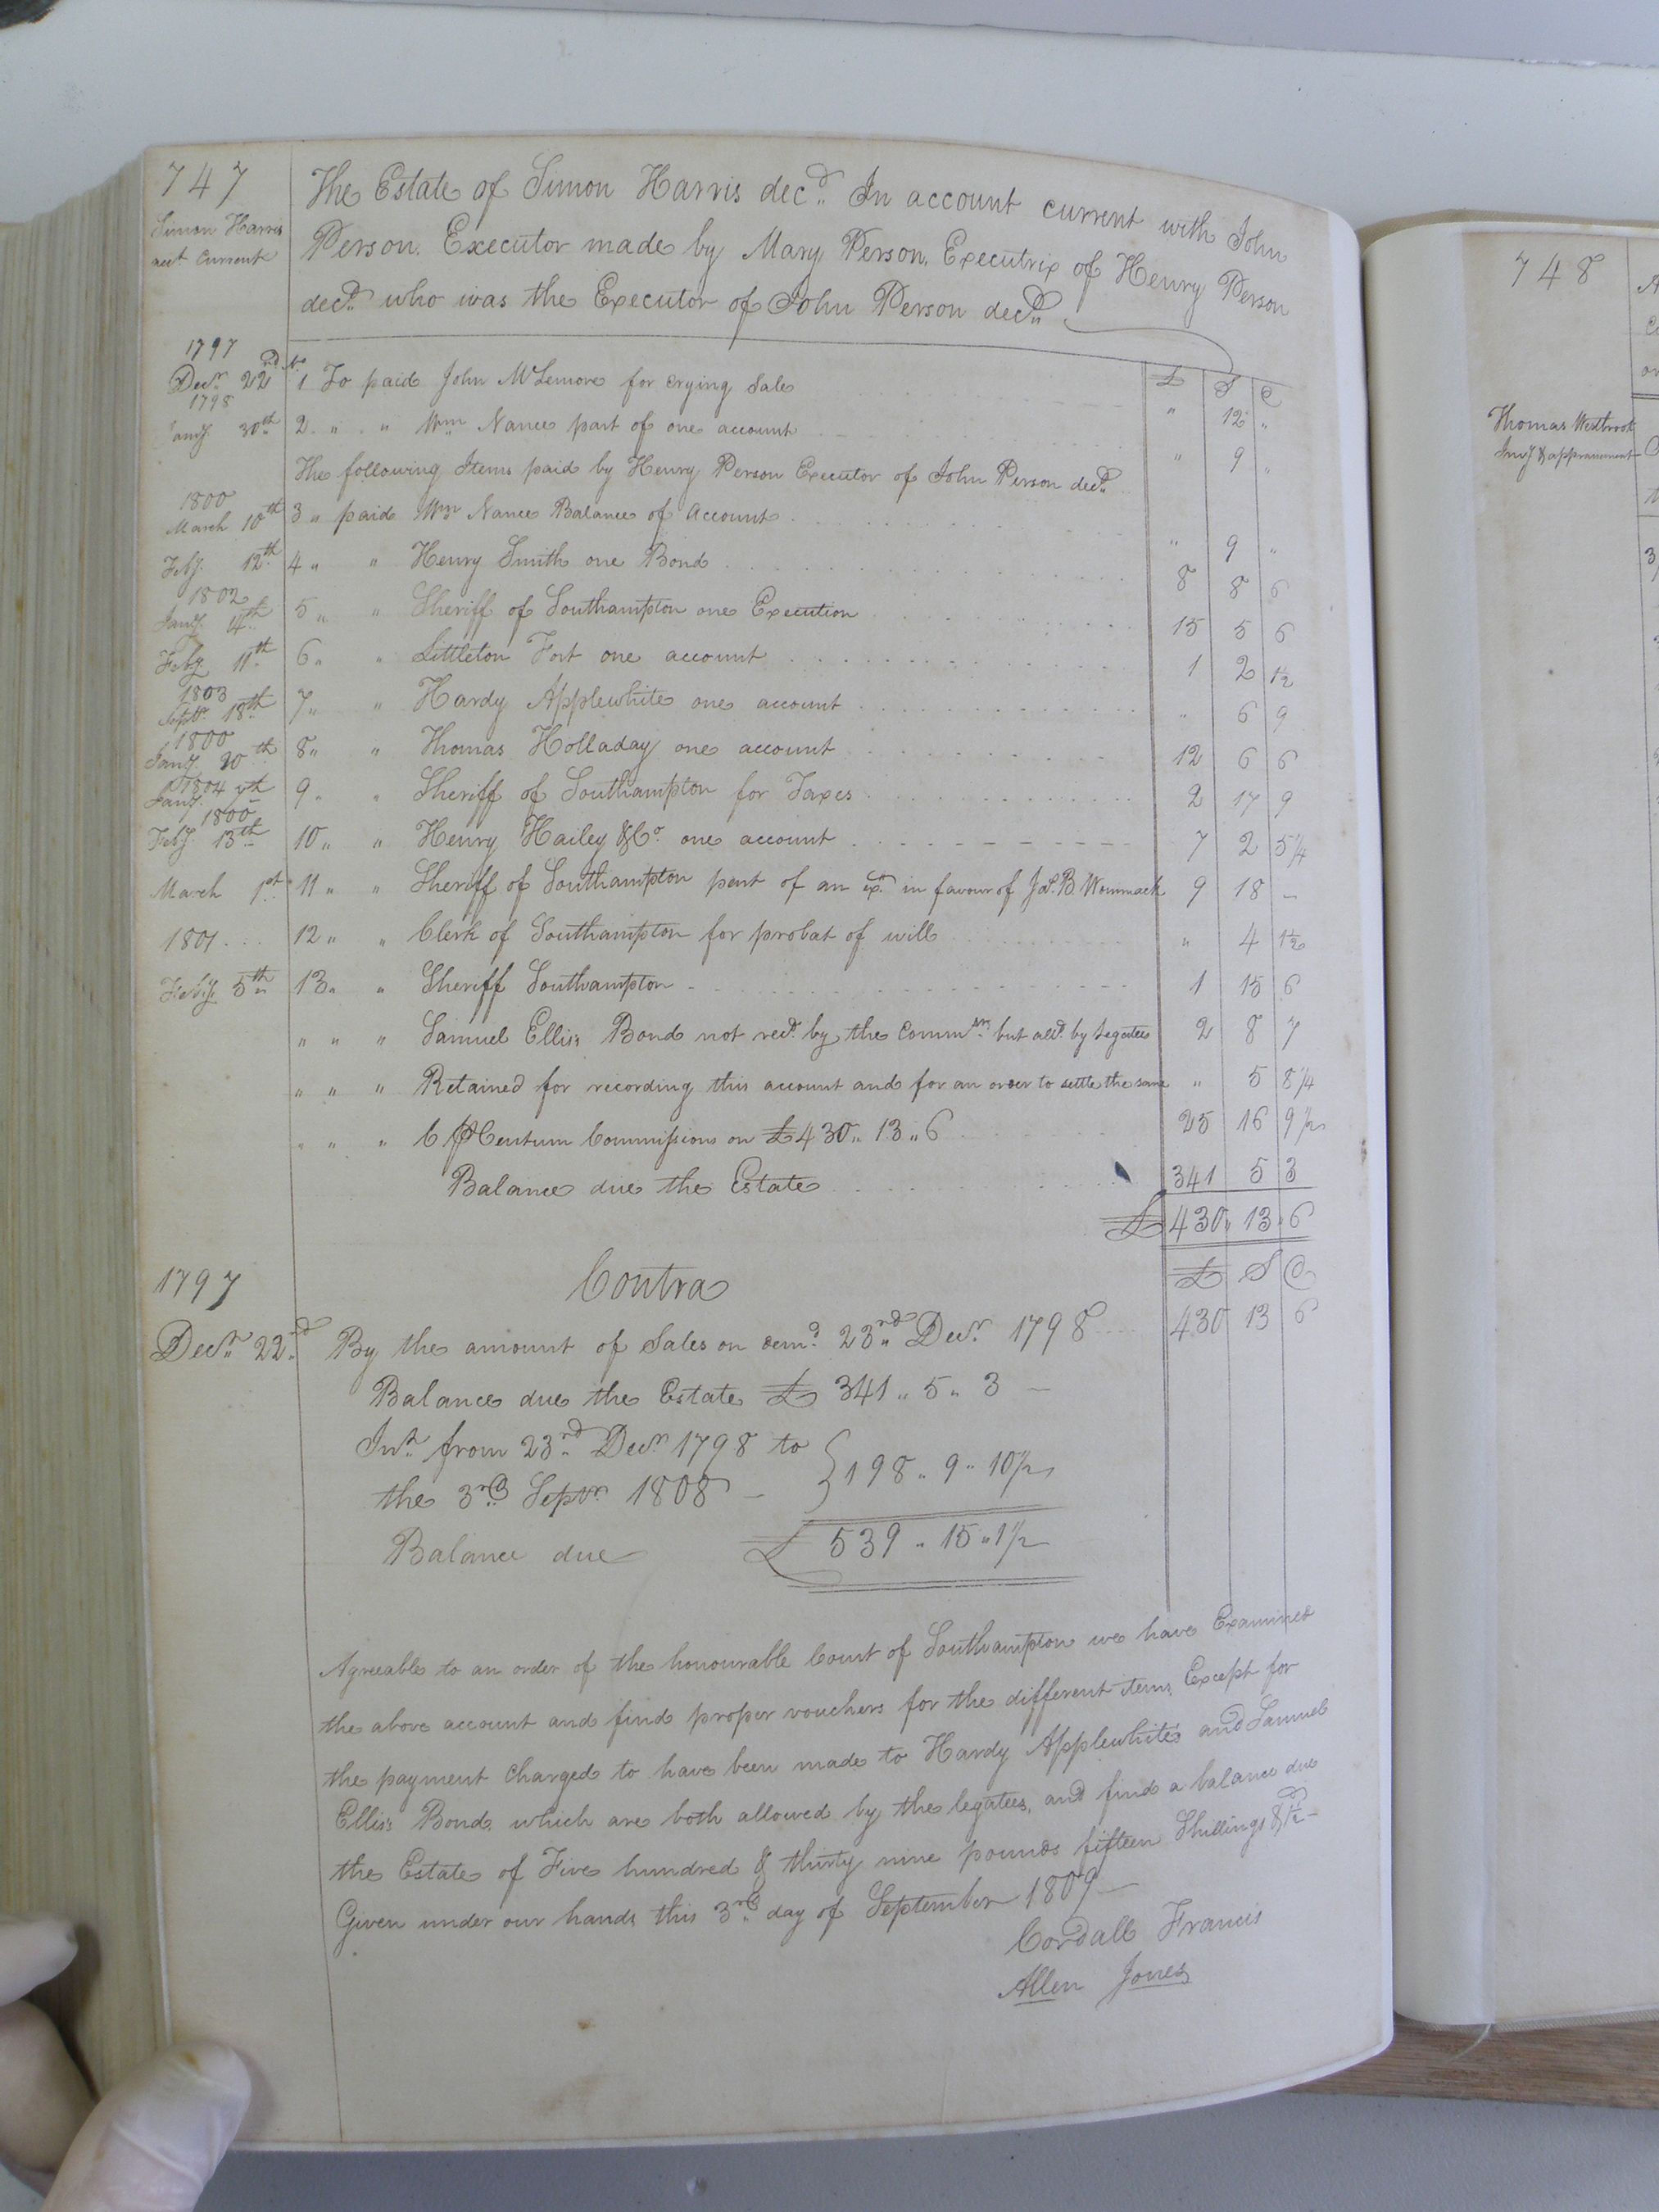 747
Simon Harris
acct Current
The Estate of Simon Harris decd. In account current with John
Person. Executor made by Mary Person. Executrix of Henry Person
decd. who was the Executor of John Person decd.
£ S D
1797
Decr. 22nd No. 1 To paid John McLemore for crying Sale " 12 "
1798
Jany. 30th 2 " " Wm. Nance part of one account " 9 "
The following Items paid by Henry Person Executor of John Person decd.
1800
March 10th 3 " paid Wm. Nance Balance of Account " 9 "
Feby. 12th 4 " " Henry Smith one Bond 8 8 6
1802
Jany. 4th 5 " " Sheriff of Southampton one Execution 15 5 6
Feby 11th 6 " " Littleton Fort one account 1 2 1½
1803
Septr. 18th 7 " " Hardy Applewhite one account " 6 9
1800
Jany. 20th 8 " " Thomas Holladay one account 12 6 6
1804
Jany. 7th 9 " " Sheriff of Southampton for Taxes 2 17 9
1800
Feby. 13th 10 " " Henry Hailey & Co. one account 7 2 5¼
March 1st 11 " " Sheriff of Southampton part of an exn. in favour of Jas. B. Wommack 9 18 –
1801 12 " " Clerk of Southampton for probat of will " 4 1½
Feby. 5th 13 " " Sheriff Southampton 1 15 6
" " " Samuel Ellis's Bond not recd. by the Commrs. but alld. by Legatees 2 8 7
" " " Retained for recording this account and for an order to settle the same " 5 8¼
" " " 6 ⅌ Centum Commissions on £430 " 13 " 6 25 16 9½
Balance due the Estate 341 5 3
£ 430 " 13 " 6
1797 Contra £ S D
Decr. 22nd By the amount of Sales on demd. 23rd Decr. 1798 430 13 6
Balance due the Estate £ 341 " 5 " 3 –
Int. from 23rd Decr 1798 to
the 3rd Septr. 1808 – } 198 " 9 " 10½
Balance due £ 539 " 15 " 1½
Agreeable to an order of the honourable Court of Southampton we have Examined
the above account and find proper vouchers for the different items, Except for
the payment charged to have been made to Hardy Applewhite's and Samuel
Ellis's Bonds which are both allowed by the legatees, and find a balance due
the Estate of Five hundred & thirty nine pounds fifteen Shillings & 1½d –
Given under our hands this 3rd day of September 1809 –
Cordall Francis
Allen Jones
748
Thomas Westbrook
Invy & appraisement